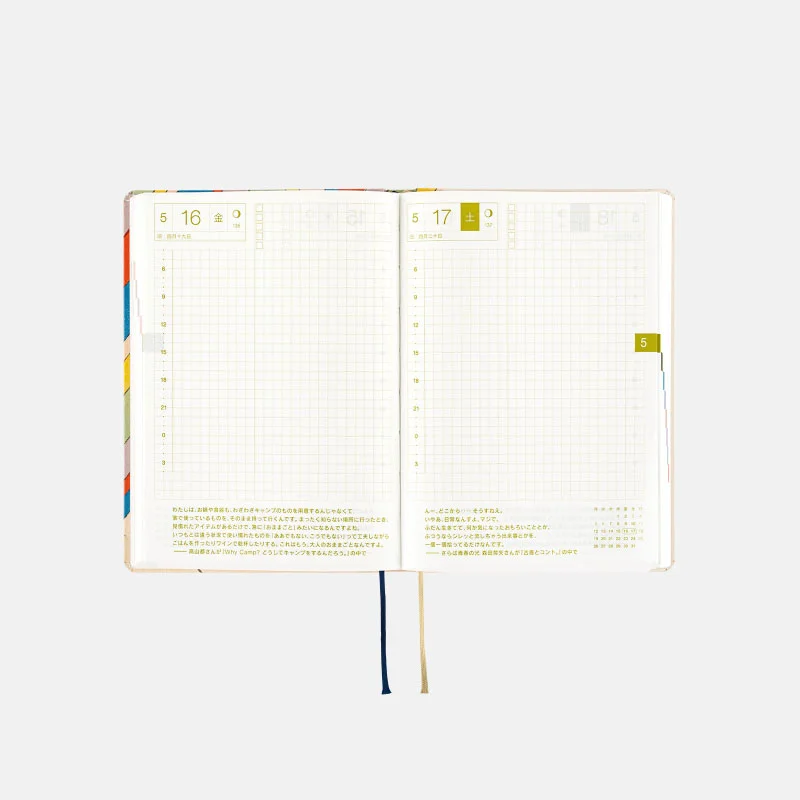 5 16 金
旧 四月十九日
6
9
12
15
18
21
0
3
わたしは、お鍋や食器も、わざわざキャンプのものを用意するんじゃなくて、
家で使っているものを、そのまま持って行くんです。まったく知らない場所に行ったとき、
見慣れたアイテムがあるだけで、急に「おままごと」みたいになるんですよね。
いつもとは違う状況で使い慣れたものを「ああでもない、こうでもない」って工夫しながら
ごはんを作ったりワインで乾杯したりする。これはもう、大人のおままごとなんですよ。
—— 高山都さんが『Why Camp? どうしてキャンプをするんだろう。』の中で
5 17 土
旧 四月二十日
6
9
12
15
18
21
0
3
5
んー、どこから……そうすねえ。
いやあ、日常なんですよ、マジで。
ふだん生きてて、何か気になったおもろいこととか、
ふつうならシレッと流しちゃう出来事とかを、
一個一個拾ってるだけなんです。
—— さらば青春の光 森田哲矢さんが『古着とコント。』の中で